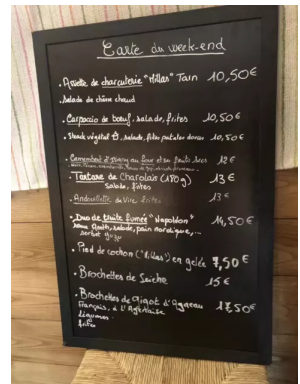 Carte du week-end
. Assiette de charcuterie "Millas" Tarn 10,50€
. Salade de chèvre chaud
. Carpaccio de bœuf, salade, frites 10,50€
. Steak végétal, salade, 10,50€
. Camembert d'Isigny au four et ses fruits secs 12€
. Tartare de Charolais (180g) 13€
salade, frites
. Andouillette de Vire frites 13€
. Duo de truite fumée "Napoléon" 14,50€
salade, pain nordique,...
sorbet yuzu
. Pied de cochon ("Millas") en gelée 7,50€
. Brochettes de Seiche 15€
. Brochettes de Gigot d'Agneau 17,50€
Français, à l'
Légumes
frites